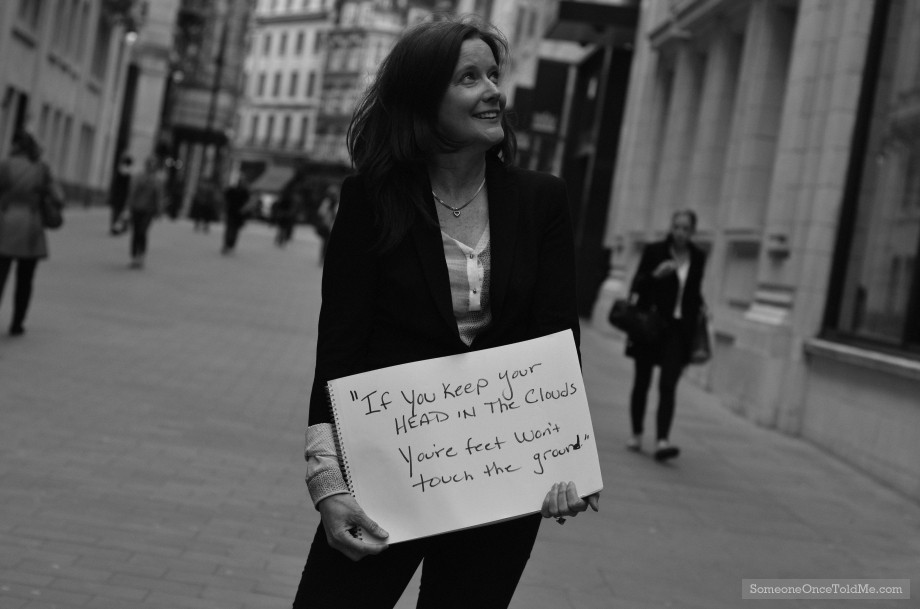 "If You Keep your
HEAD IN The Clouds
You're feet won't
touch the ground"
SomeoneOnceToldMe.com